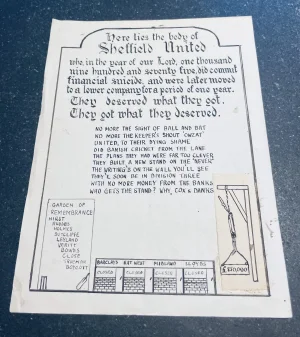 Here lies the body of
Sheffield United
who, in the year of our Lord, one thousand
nine hundred and seventy five, did commit
financial suicide, and were later moved
to a lower company for a period of one year.
They deserved what they got.
They got what they deserved.
NO MORE THE SIGHT OF BALL AND BAT
NO MORE THE KEEPER'S SHOUT 'OWZAT'
UNITED, TO THEIR DYING SHAME
DID BANISH CRICKET FROM THE LANE
THE PLANS THEY HAD WERE FAR TOO CLEVER
THEY BUILT A NEW STAND ON THE 'NEVER'
THE WRITING'S ON THE WALL YOU'LL SEE
THEY'LL SOON BE IN DIVISION THREE
WITH NO MORE MONEY FROM THE BANKS
WHO GETS THE STAND? WHY, COX & DANKS
GARDEN OF
REMEMBRANCE
HIRST
RHODES
HOLMES
SUTCLIFFE
LEYLAND
VERITY
BOWES
CLOSE
TRUEMAN
BOYCOTT
BARCLAYS
NAT WEST
MIDLAND
LLOYDS
CLOSED
CLOSED
CLOSED
CLOSED